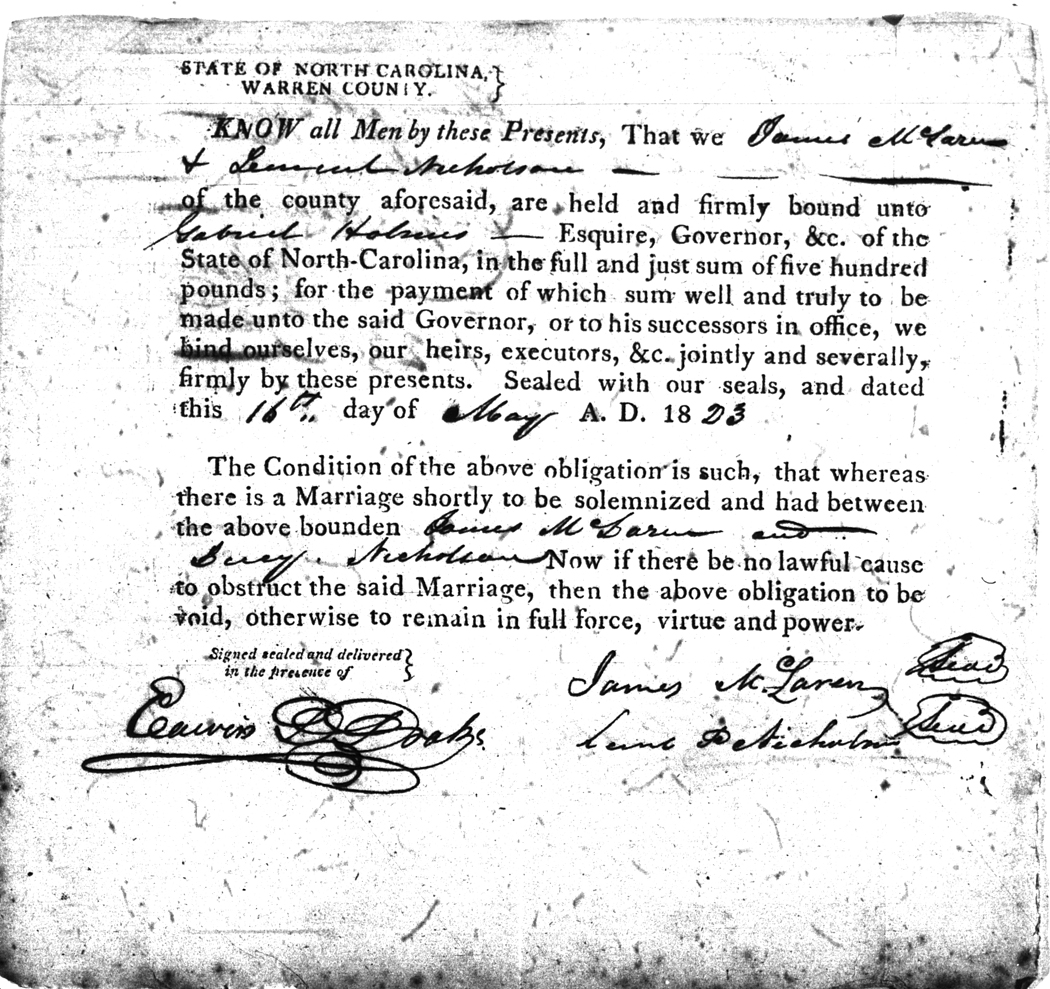 STATE OF NORTH CAROLINA, }
WARREN COUNTY.
KNOW all Men by these Presents, That we James McLaren
& Lemuel Nicholson —
of the county aforesaid, are held and firmly bound unto
Gabriel Holmes — Esquire, Governor, &c. of the
State of North-Carolina, in the full and just sum of five hundred
pounds; for the payment of which sum well and truly to be
made unto the said Governor, or to his successors in office, we
bind ourselves, our heirs, executors, &c. jointly and severally,
firmly by these presents. Sealed with our seals, and dated
this 16th. day of May A. D. 1823
The Condition of the above obligation is such, that whereas
there is a Marriage shortly to be solemnized and had between
the above bounden James McLaren and
Nicholson Now if there be no lawful cause
to obstruct the said Marriage, then the above obligation to be
void, otherwise to remain in full force, virtue and power.
Signed sealed and delivered }
in the presence of
James McLaren Seal
Edwin D. Drake
Nicholson Seal